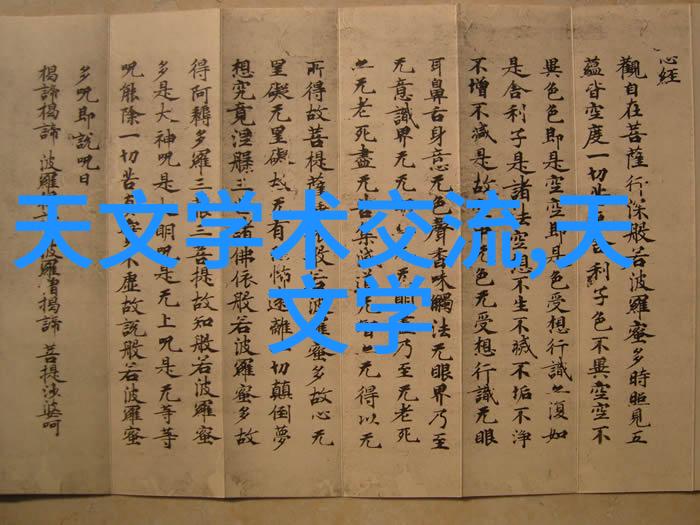 心经
觀自在菩薩行深般若波羅蜜多時照見五
蘊皆空度一切苦利子色不異空空不
異色色即是空空即是色受想行識亦復如
是舍利子是諸法空不生不滅不垢不淨
不增不減是故中无色无受想行識无眼
耳鼻舌身意无色聲香味觸法无眼界乃至
无意識界无无明乃至无老死
亦无老死盡无苦集滅道无智亦无得以无
所得故菩提薩般若波羅蜜多故心无
罣礙无罣礙故无有怖遠離一切顛倒夢
想究竟涅槃三諸佛依般若波羅蜜多故
得阿耨多羅三藐三菩提故知般若波羅蜜
多是大神咒是大明咒是无上咒是无等等
咒能除一切苦真實不虛故說般若波羅蜜
多咒即說咒曰
揭諦揭諦 波羅揭 波羅僧揭諦 菩提薩婆呵
天文学术交流,天
文学